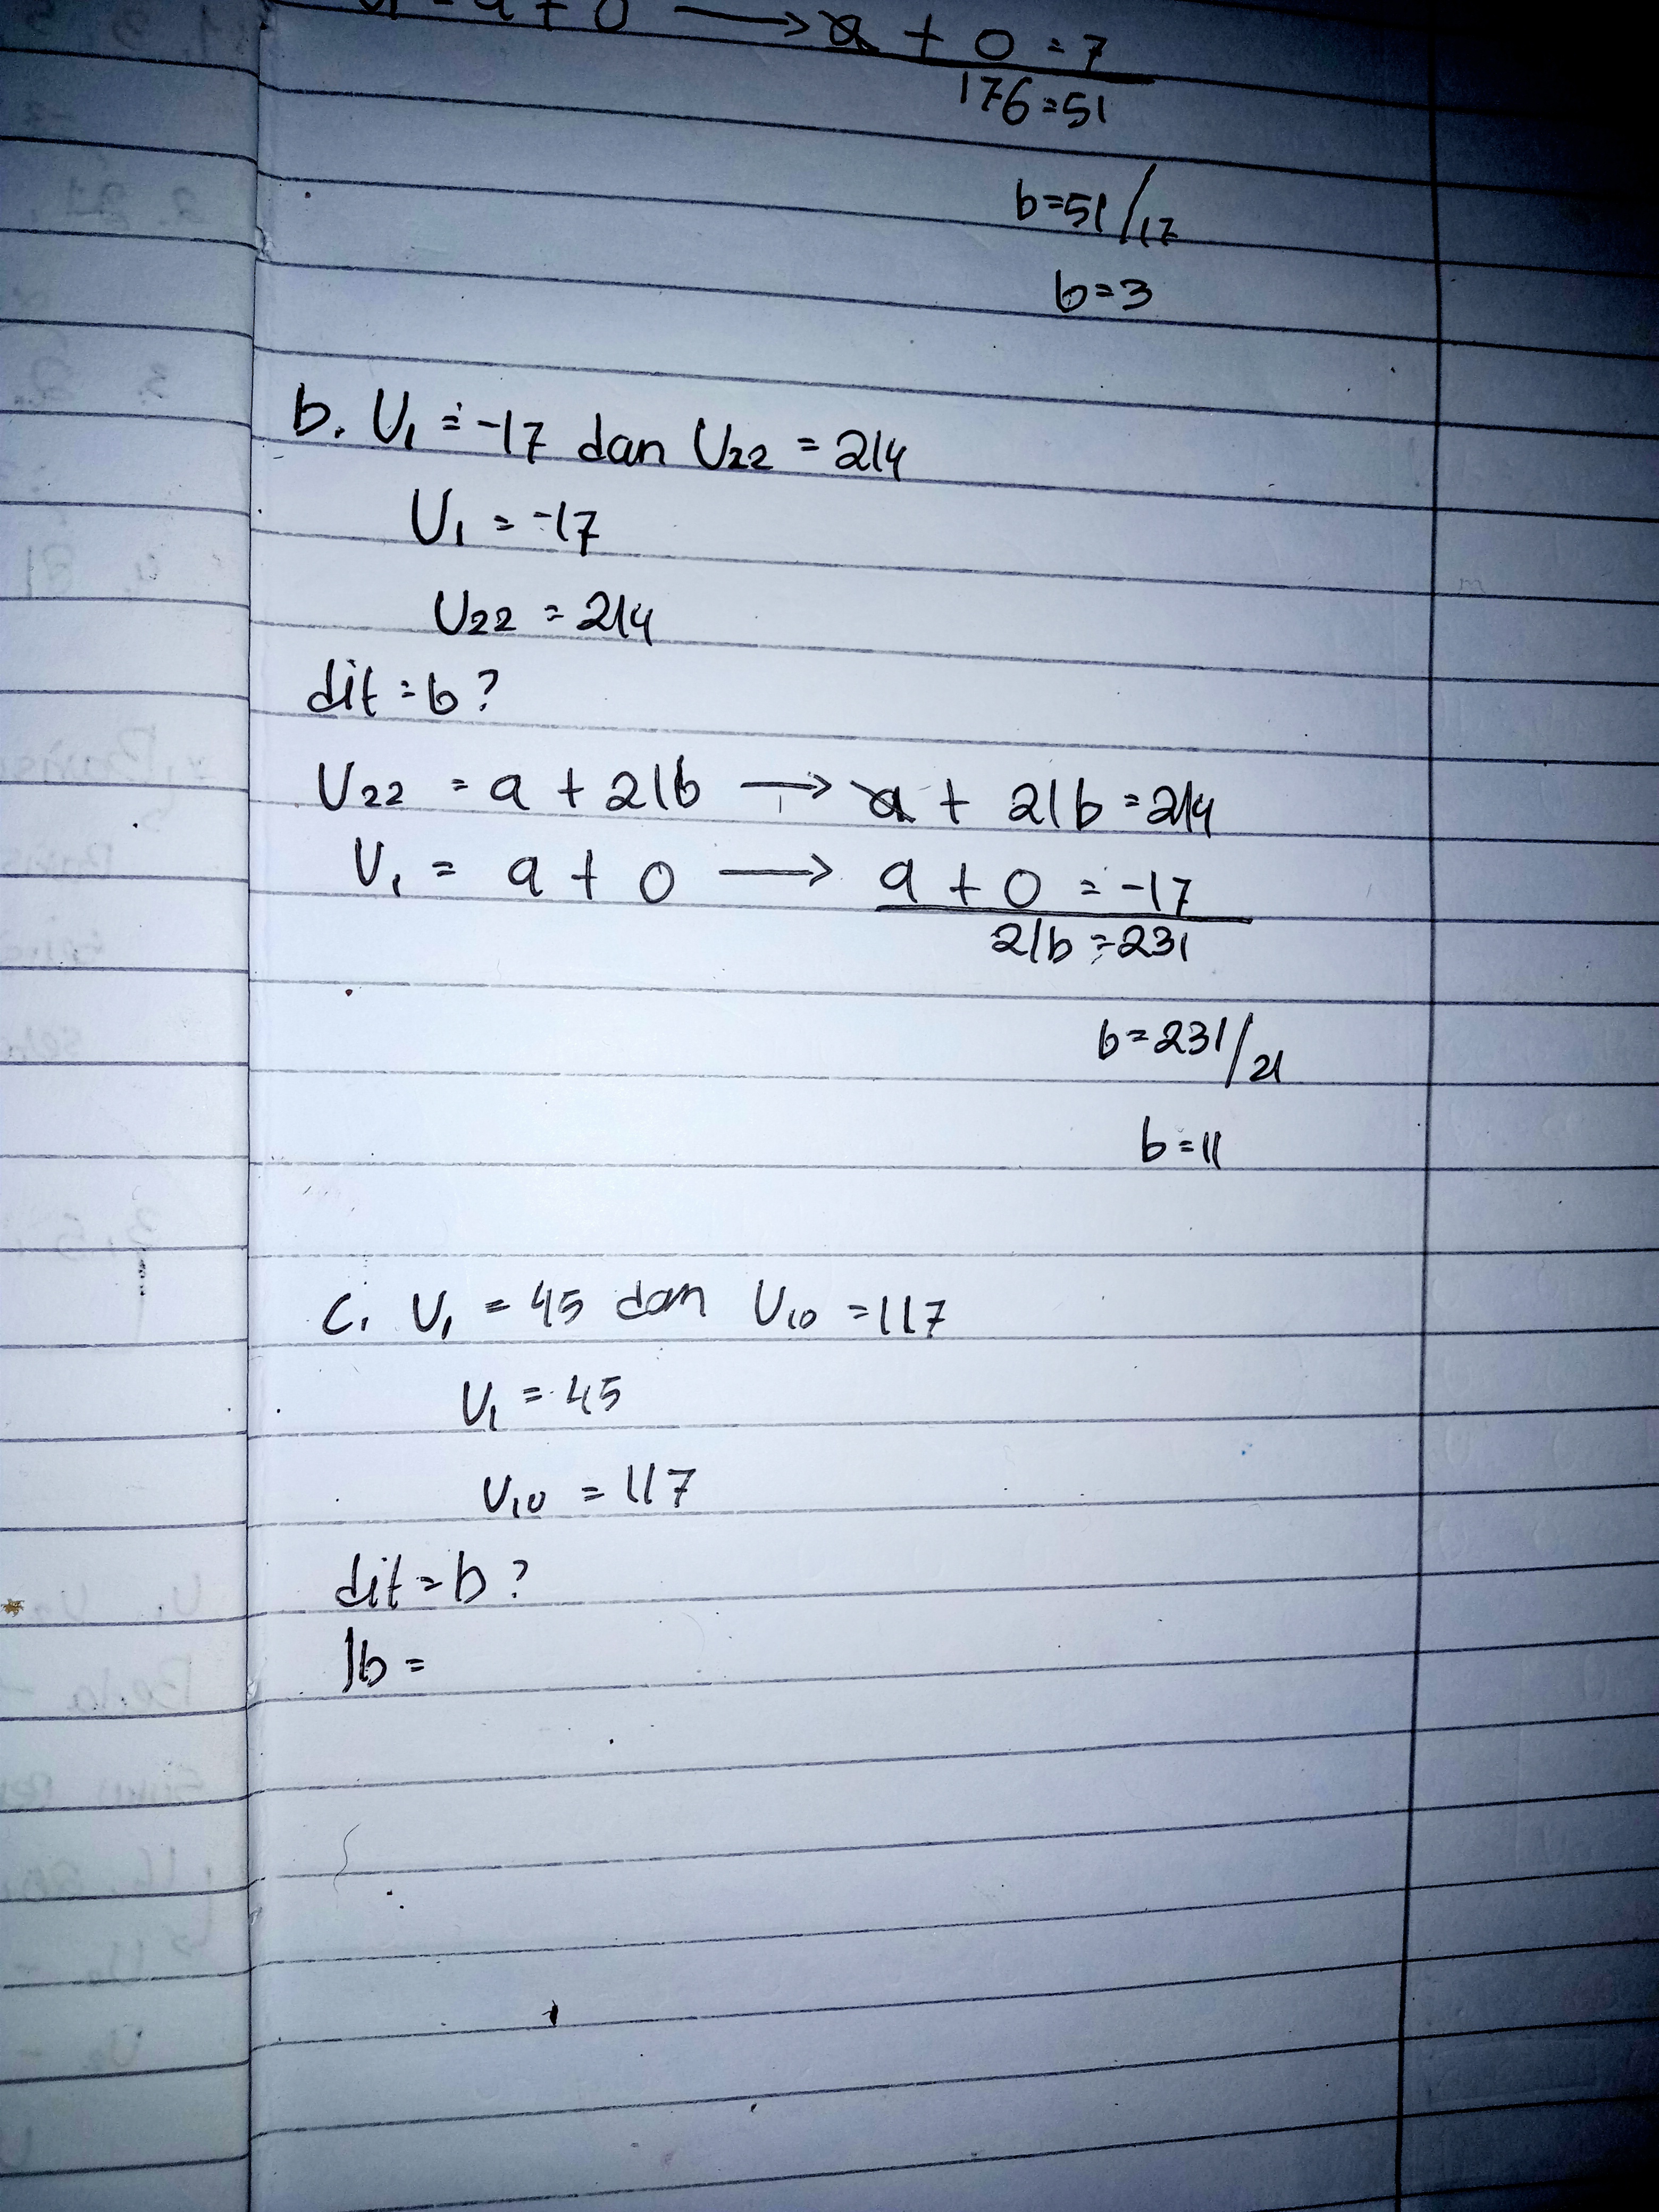 U₁ = a + 0 → a + 0 = 7
17b = 51
b = 51/17
b = 3
b. U₁ = -17 dan U₂₂ = 214
U₁ = -17
U₂₂ = 214
dit = b?
U₂₂ = a + 21b → a + 21b = 214
U₁ = a + 0 → a + 0 = -17
21b = 231
b = 231/21
b = 11
c. U₁ = 45 dan U₁₀ = 117
U₁ = 45
U₁₀ = 117
dit = b?
Jb =